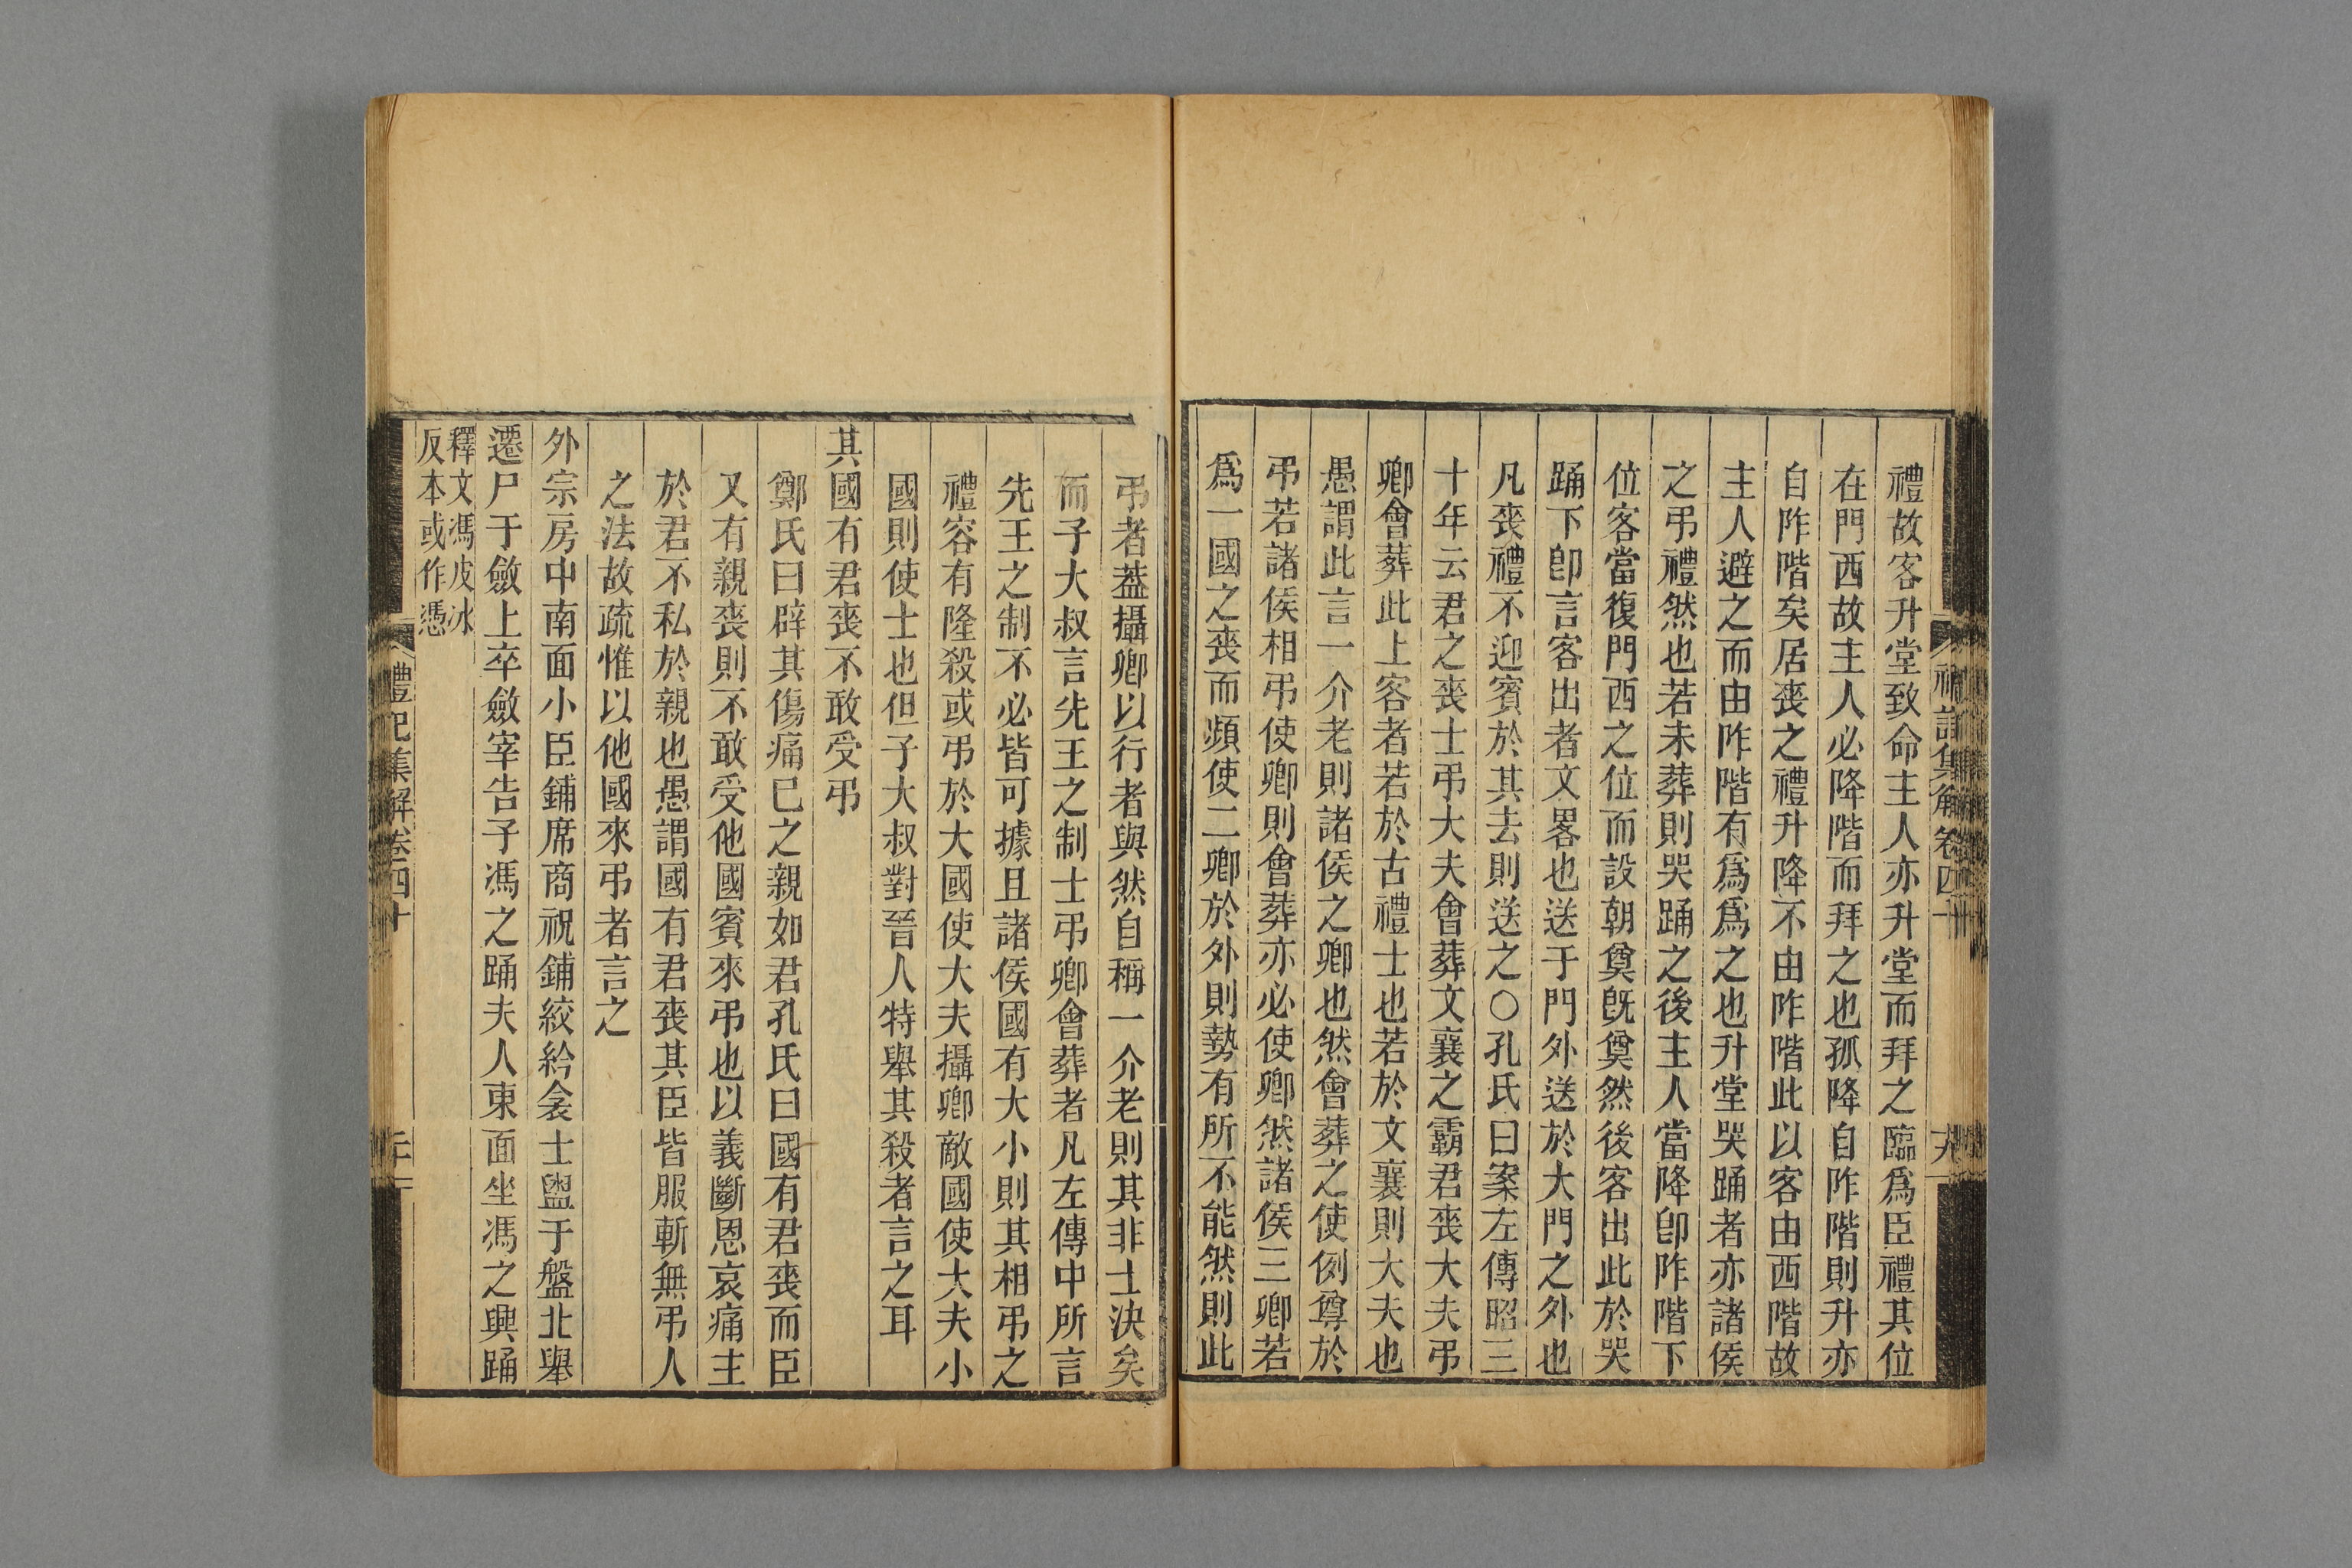 禮故客升堂致命主人亦升堂而拜之臨爲臣禮其位
在門西故主人必降階而拜之也孤降自阼階則升亦
自阼階矣居喪之禮升降不由阼階此以客由西階故
主人避之而由阼階有爲爲之也升堂哭踊者亦諸侯
之弔禮然也若未葬則哭踊之後主人當降卽阼階下
位客當復門西之位而設朝奠旣奠然後客出此於哭
踊下卽言客出者文畧也送于門外送於大門之外也
凡喪禮不迎賓於其去則送之○孔氏曰案左傳昭三
十年云君之喪士弔大夫會葬文襄之霸君喪大夫弔
卿會葬此上客者若於古禮士也若於文襄則大夫也
愚謂此言一介老則諸侯之卿也然會葬之使例尊於
弔若諸侯相弔使卿則會葬亦必使卿然諸侯三卿若
爲一國之喪而頻使二卿於外則勢有所不能然則此
弔者葢攝卿以行者與然自稱一介老則其非士決矣
而子大叔言先王之制士弔卿會葬者凡左傳中所言
先王之制不必皆可據且諸侯國有大小則其相弔之
禮容有隆殺或弔於大國使大夫攝卿敵國使大夫小
國則使士也但子大叔對晉人特舉其殺者言之耳
其國有君喪不敢受弔
鄭氏曰辟其傷痛已之親如君孔氏曰國有君喪而臣
又有親喪則不敢受他國賓來弔也以義斷恩哀痛主
於君不私於親也愚謂國有君喪其臣皆服斬無弔人
之法故疏惟以他國來弔者言之
外宗房中南面小臣鋪席商祝鋪絞紟衾士盥于盤北舉
遷尸于斂上卒斂宰告子馮之踊夫人東面坐馮之興踊
釋文馮皮冰
反本或作憑
禮記集解卷四十